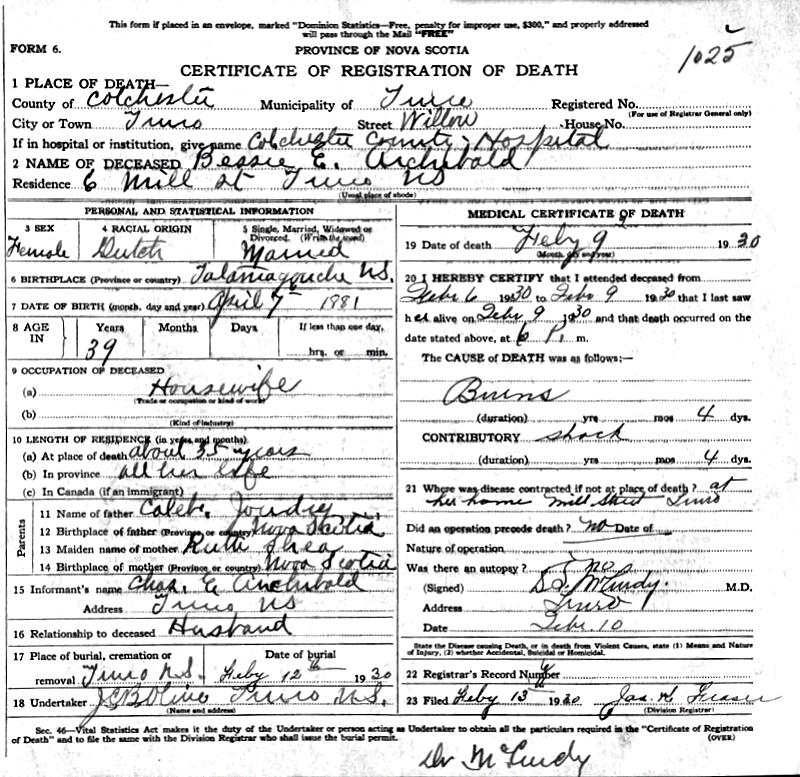 This form if placed in an envelope, marked "Dominion Statistics—Free, penalty for improper use, $300," and properly addressed
will pass through the Mail "FREE"
FORM 6.
PROVINCE OF NOVA SCOTIA
1025
CERTIFICATE OF REGISTRATION OF DEATH
1 PLACE OF DEATH—
County of Colchester Municipality of Truro Registered No.
(For use of Registrar General only)
City or Town Truro Street Willow House No.
If in hospital or institution, give name Colchester County Hospital
2 NAME OF DECEASED Bessie E. Archibald
Residence 6 Mill st Truro NS
(Usual place of abode)
PERSONAL AND STATISTICAL INFORMATION
3 SEX Female
4 RACIAL ORIGIN Dutch
5 Single, Married, Widowed or Divorced. (Write the word) Married
6 BIRTHPLACE (Province or country) Tatamagouche N.S.
7 DATE OF BIRTH (month, day and year) April 7th 1881
8 AGE IN Years 39 Months Days If less than one day, hrs. or min.
9 OCCUPATION OF DECEASED
(a) Housewife
(Trade or occupation or kind of work)
(b)
(Kind of industry)
10 LENGTH OF RESIDENCE (in years and months)
(a) At place of death about 35 years
(b) In province all her life
(c) In Canada (if an immigrant)
Parents
11 Name of father Caleb Joudrey
12 Birthplace of father (Province or country) Nova Scotia
13 Maiden name of mother Ruth Shea
14 Birthplace of mother (Province or country) Nova Scotia
15 Informant's name Chas. E. Archibald
Address Truro NS
16 Relationship to deceased Husband
17 Place of burial, cremation or removal Truro N.S. Date of burial Feby 12th 1930
18 Undertaker Truro N.S.
(Name and address)
MEDICAL CERTIFICATE OF DEATH
19 Date of death Feby 9 1930
(Month, day and year)
20 I HEREBY CERTIFY that I attended deceased from
Feb 6 1930 to Feb 9 1930 that I last saw
her alive on Feb 9 1930 and that death occurred on
date stated above, at 6 P. m.
The CAUSE of DEATH was as follows:—
Burns
(duration) yrs mos 4 dys.
CONTRIBUTORY shock
(duration) yrs mos 4 dys.
21 Where was disease contracted if not at place of death? at
her home Mill Street Truro
Did an operation precede death? no Date of
Nature of operation
Was there an autopsy? no
(Signed) McCurdy. M.D.
Address Truro
Date Feb 10
State the Disease causing Death, or in death from Violent Causes, state (1) Means and Nature
of Injury, (2) whether Accidental, Suicidal or Homicidal.
22 Registrar's Record Number
23 Filed Feby 13th 1930 Jas. K. Fraser
(Division Registrar)
Sec. 46—Vital Statistics Act makes it the duty of the Undertaker or person acting as Undertaker to obtain all the particulars required in the "Certificate of Registration
of Death" and to file the same with the Division Registrar who shall issue the burial permit.
(OVER)
Dr McCurdy